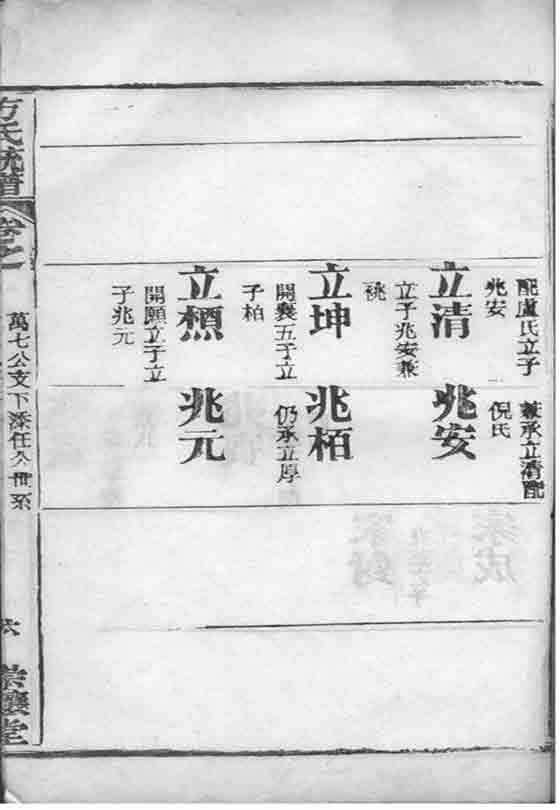 配盧氏立子
兆安
立清
立子兆安兼
祧
立坤
開襄五子立
子柏
立㯋
開願立子立
子兆元
兼承立清配
倪氏
兆安
兆栢
仍承立厚
兆元
方氏統譜
卷之
萬七公支下添任公世系
六
堂